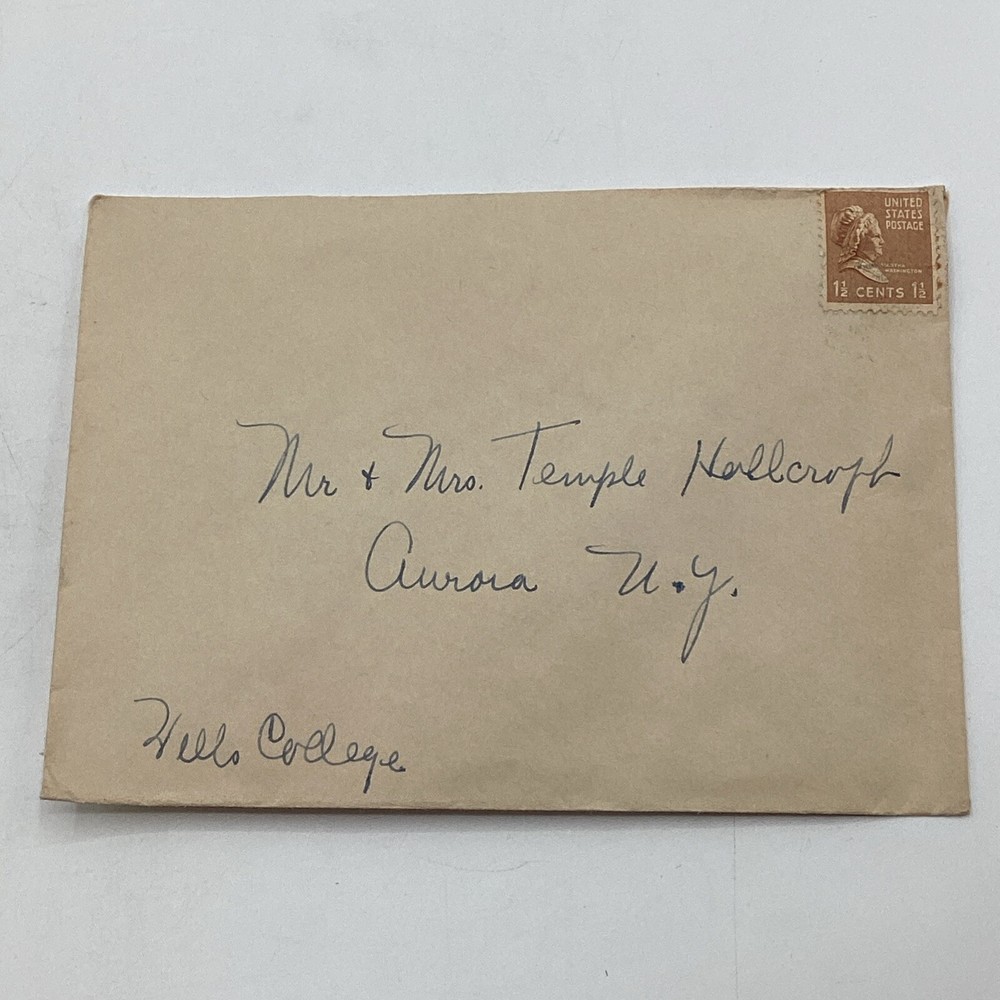 UNITED
STATES
POSTAGE
MARTHA
WASHINGTON
1½ CENTS 1½
Mr + Mrs. Temple Hollcroft
Aurora N.Y.
Wells College